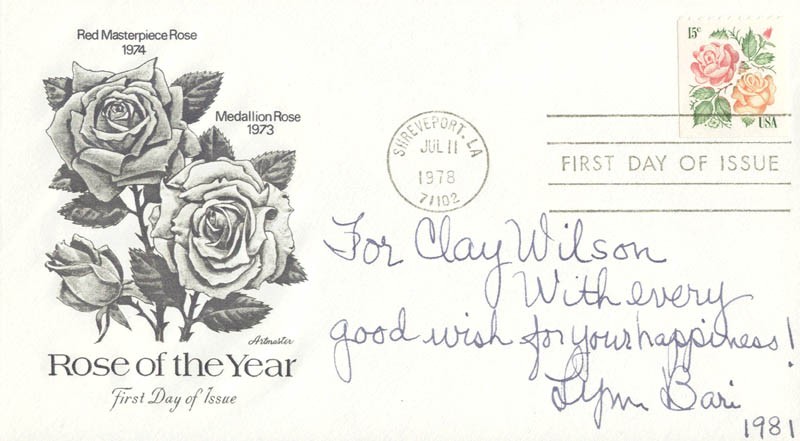 Red Masterpiece Rose
1974
Medallion Rose
1973
Artmaster
Rose of the Year
First Day of Issue
SHREVEPORT, LA
JUL 11
1978
71102
15c
USA
FIRST DAY OF ISSUE
For Clay Wilson
With every
good wish for your happiness!
Lynn Bari
1981